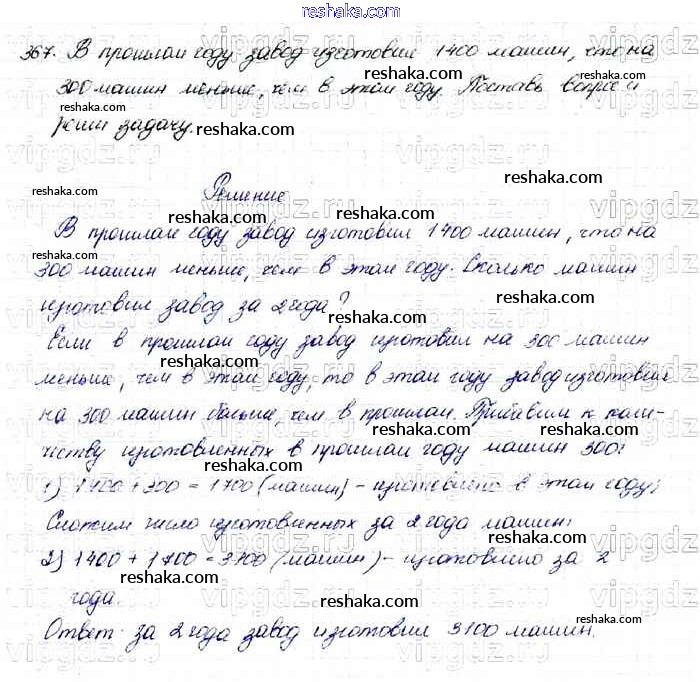 reshaka.com
367. В прошлом году завод изготовил 1400 машин, что на
300 машин меньше, чем в этом году. Поставь вопрос и
реши задачу.
Решение
В прошлом году завод изготовил 1400 машин, что на
300 машин меньше, чем в этом году. Сколько машин
изготовил завод за 2 года?
Если в прошлом году завод изготовил на 300 машин
меньше, чем в этом году, то в этом году завод изготовил
на 300 машин больше, чем в прошлом. Прибавим к коли-
честву изготовленных в прошлом году машин 300:
1) 1400 + 300 = 1700 (машин) - изготовлено в этом году;
Сложим число изготовленных за 2 года машин:
2) 1400 + 1700 = 3100 (машин) - изготовлено за 2
года.
Ответ: за 2 года завод изготовил 3100 машин.